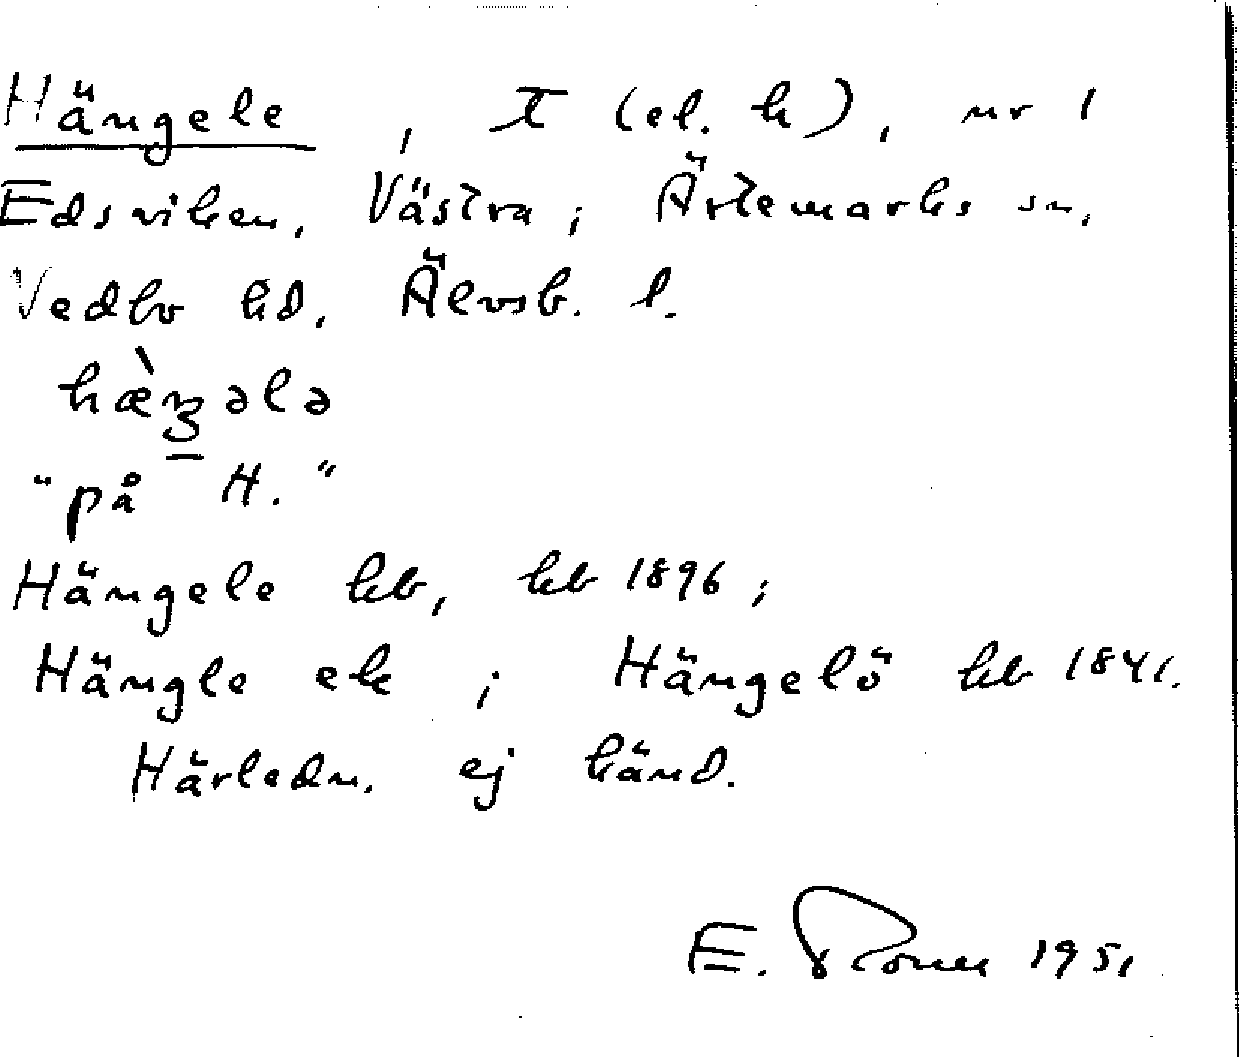 Hängele, t (el. h), nr 1
Edsviken, Västra; Ärtemarks sn,
Vedbo hd, Älvsb. l.
"på H."
Hängele hb, kb 1896;
Hängle ek; Hängelö kb 1841.
Härledn. ej känd.
E. 1951